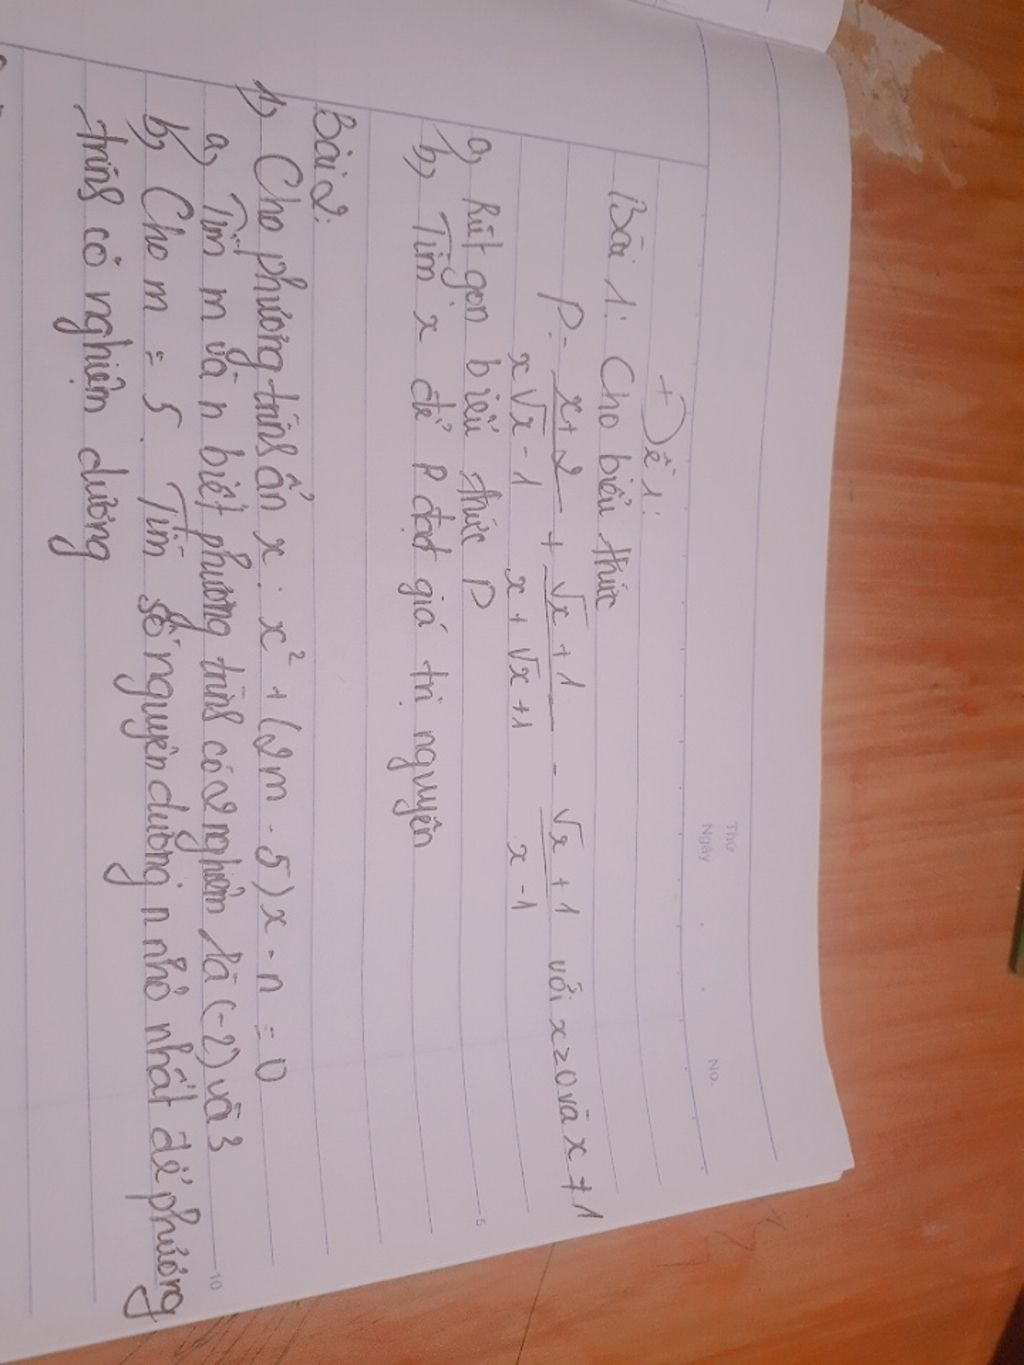 Thứ
Ngày . . No.
+) Đề 1:
Bài 1: Cho biểu thức
P = x+2 / x√x - 1 + √x + 1 / x + √x + 1 - √x + 1 / x - 1 với x ≥ 0 và x ≠ 1
a, Rút gọn biểu thức P
b, Tìm x để P đạt giá trị nguyên
Bài 2:
1, Cho phương trình ẩn x : x² + (2m - 5)x - n = 0
a, Tìm m và n biết phương trình có 2 nghiệm là (-2) và 3
b, Cho m = 5. Tìm số nguyên dương n nhỏ nhất để phương
trình có nghiệm dương
5
10